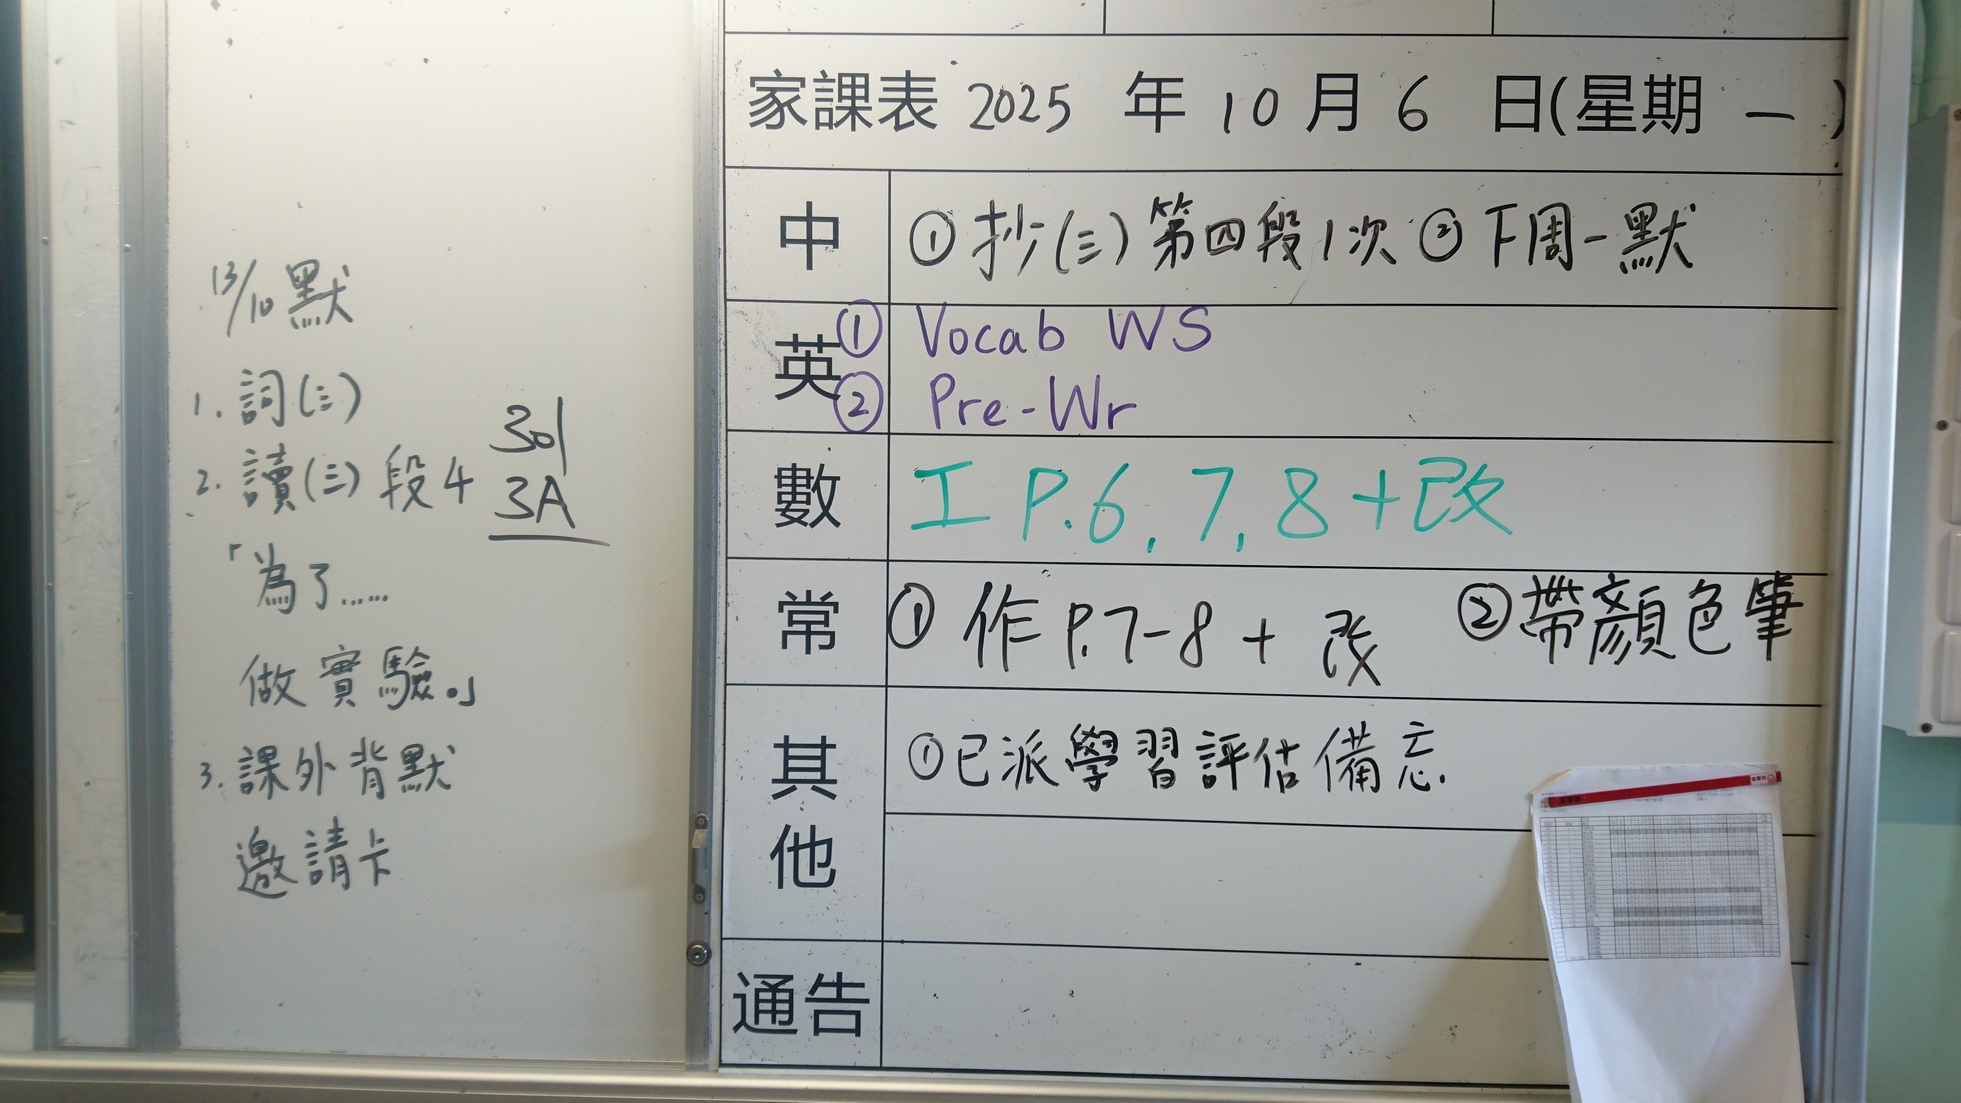 13/10 默
1. 詞(三)
2. 讀(三) 段4
「為了......
做實驗。」
3. 課外背默
邀請卡
301
3A
家課表 2025 年 10 月 6 日(星期 一 )
中 ① 抄(三)第四段1次 ② 下周一默
英 ① Vocab WS
② Pre-Wr
數 工 P.6, 7, 8 + 改
常 ① 作 P.7-8 + 改 ② 帶顏色筆
其他 ① 已派學習評估備忘.
通告